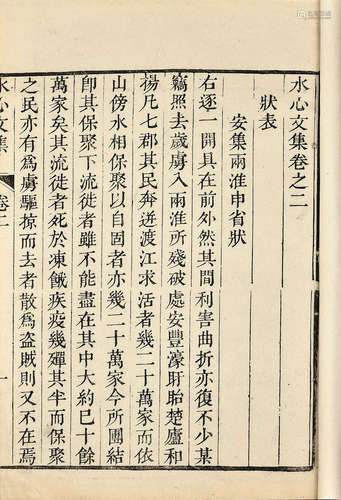 水心文集卷之二
狀表
安集兩淮申省狀
右逐一開具在前外然其間利害曲折亦復不少某
竊照去歲虜入兩淮所殘破處安豐濠盱眙楚廬和
揚凡七郡其民奔迸渡江求活者幾二十萬家而依
山傍水相保聚以自固者亦幾二十萬家今所團結
卽其保聚下流徙者雖不能盡在其中大約已十餘
萬家矣其流徙者死於凍餓疾疫幾殫其半而保聚
之民亦有爲虜驅掠而去者散爲盜賊則又不在焉
水心文集
卷二
一